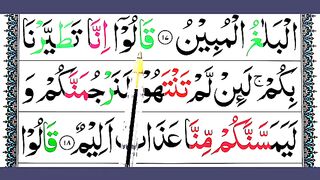 الْبَلٰغُ الْمُبِيْنُ ﴿۱۷﴾ قَالُوْۤا اِنَّا تَطَيَّرْنَا
بِكُمْ ۚ لَئِنْ لَّمْ تَنْتَهُوْا لَنَرْجُمَنَّكُمْ وَ
لَيَمَسَّنَّكُمْ مِّنَّا عَذَابٌ اَلِيْمٌ ﴿۱۸﴾ قَالُوْا